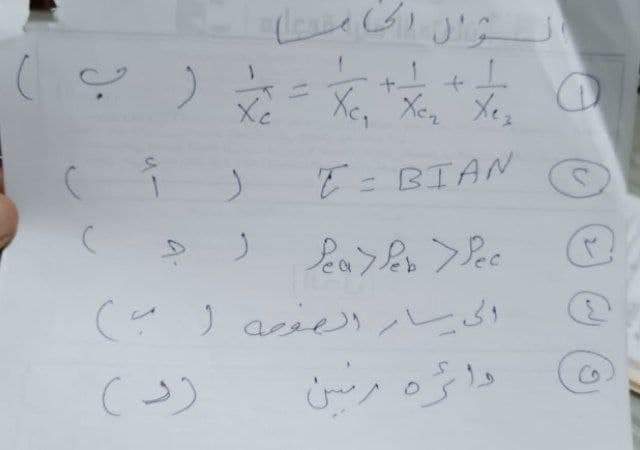 السؤال الخامس
① 1/Xc = 1/Xc₁ + 1/Xc₂ + 1/Xc₃ ( ب )
② τ = BIAN ( أ )
③ ρea > ρeb > ρec ( جـ )
④ الى يسار الصفحه ( ب )
⑤ دائره رنين ( د )